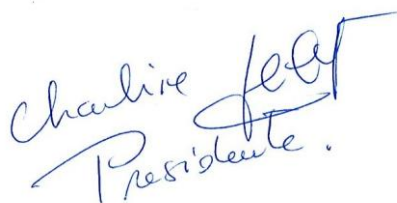 Charline
Presidente.